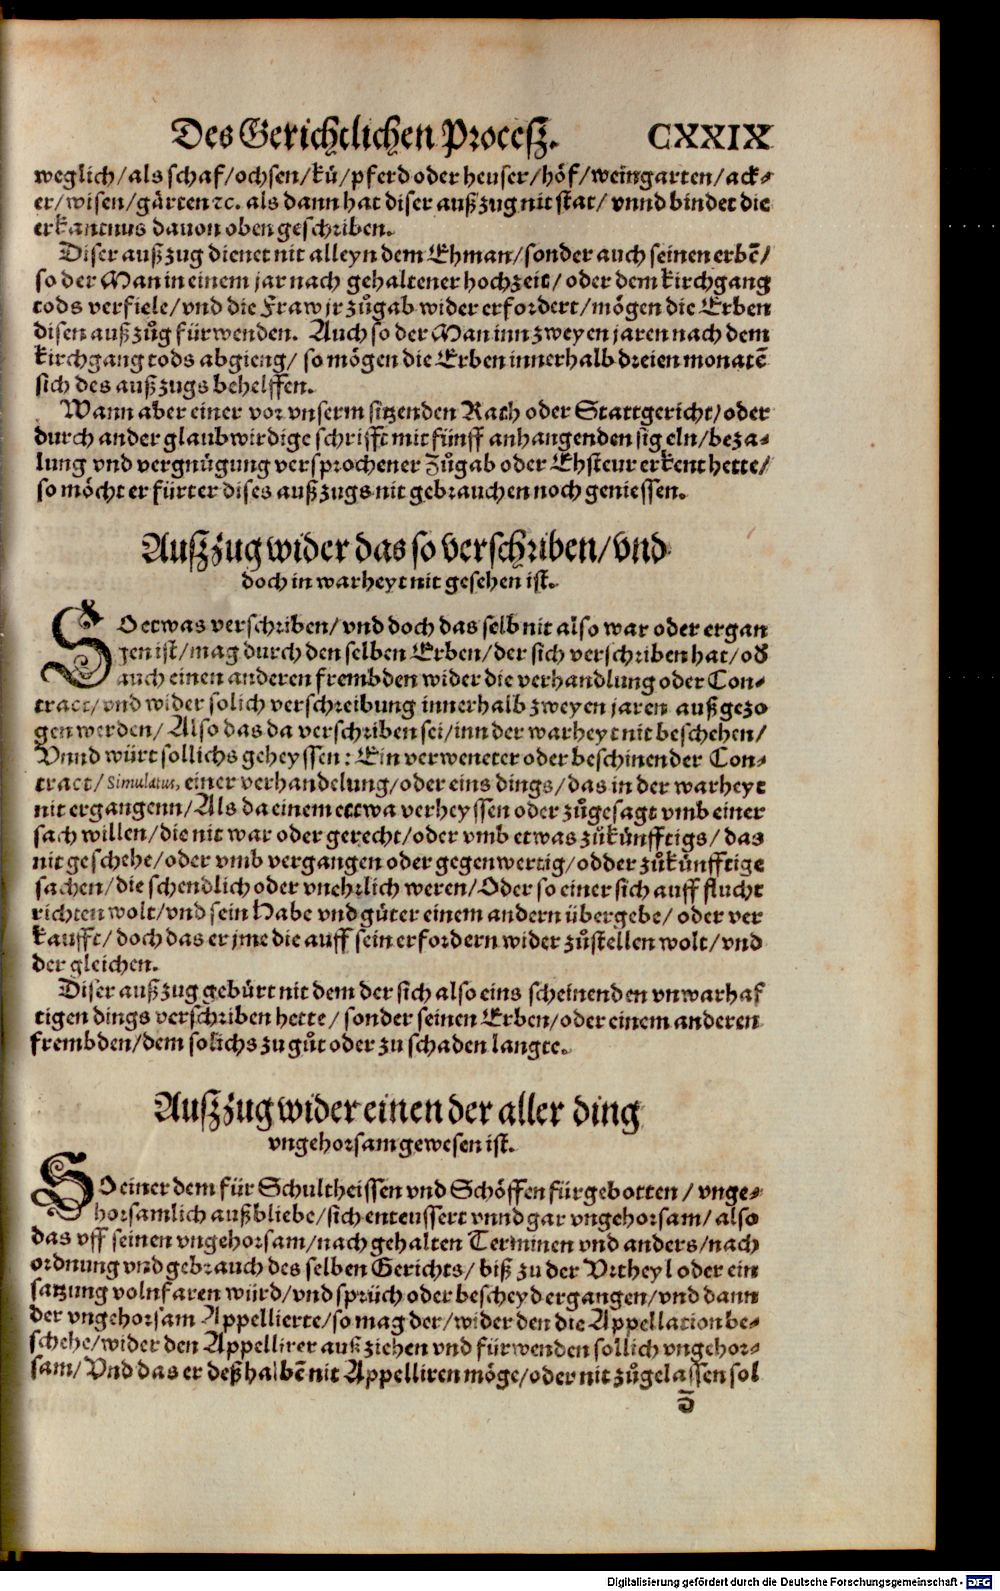 Des Gerichtlichen Procesz. CXXIX
weglich/als schaf/ochsen/kü/pferd oder heuser/höf/weingarten/ack⸗
er/wisen/gärten ꝛc. als dann hat diser außzug nit stat/vnnd bindet die
erkantnus dauon oben geschriben.
Diser außzug dienet nit alleyn dem Ehman/sonder auch seinen erbē/
so der Man in einem jar nach gehaltener hochzeit/oder dem kirchgang
tods verfiele/vnd die Fraw jr zůgab wider erfordert/mögen die Erben
disen außzůg fürwenden. Auch so der Man inn zweyen jaren nach dem
kirchgang tods abgieng/ so mögen die Erben innerhalb dreien monatē
sich des außzugs behelffen.
Wann aber einer vor vnserm sitzenden Rath oder Stattgericht/oder
durch ander glaubwirdige schrifft mit fünff anhangenden sigeln/beza⸗
lung vnd vergnügung versprochener Zůgab oder Ehsteur erkent hette/
so möcht er fürter dises außzugs nit gebrauchen noch geniessen.
Auszzug wider das so verschriben/vnd
doch in warheyt nit gesehen ist.
SO etwas verschriben/vnd doch das selb nit also war oder ergan
gen ist/mag durch den selben Erben/der sich verschriben hat/oď
auch einen anderen frembden wider die verhandlung oder Con⸗
tract/vnd wider solich verschreibung innerhalb zweyen jaren außgezo
gen werden/ Also das da verschriben sei/inn der warheyt nit beschehen/
Vnnd würt sollichs geheyssen: Ein verweneter oder beschinender Con⸗
tract/ Simulatus, einer verhandelung/oder eins dings/das in der warheyt
nit ergangenn/Als da einem ettwa verheyssen oder zůgesagt vmb einer
sach willen/die nit war oder gerecht/oder vmb etwas zůkünfftigs/das
nit geschehe/oder vmb vergangen oder gegenwertig/odder zůkünfftige
sachen/die schendlich oder vnehrlich weren/Oder so einer sich auff flucht
richten wolt/vnd sein Habe vnd güter einem andern übergebe/ oder ver
kaufft/doch das er jme die auff sein erfordern wider zůstellen wolt/vnd
der gleichen.
Diser außzug gebürt nit dem der sich also eins scheinenden vnwarhaf
tigen dings verschriben hette/ sonder seinen Erben/oder einem anderen
frembden/dem solichs zu gůt oder zu schaden langte.
Auszzug wider einen der aller ding
vngehorsam gewesen ist.
SO einer dem für Schultheissen vnd Schöffen fürgebotten/ vnge⸗
horsamlich außbliebe/sich enteussert vnnd gar vngehorsam/ also
das vff seinen vngehorsam/nach gehalten Terminen vnd anders/nach
ordnung vnd gebrauch des selben Gerichts/ biß zu der Vrtheyl oder ein
satzung volnfaren würd/vnd sprüch oder bescheyd ergangen/vnd dann
der vngehorsam Appellierte/so mag der/wider den die Appellation be⸗
schehe/wider den Appellirer außziehen vnd fürwenden sollich vngehor⸗
sam/Vnd das er deßhalbē nit Appelliren möge/oder nit zůgelassen sol
Digitalisierung gefördert durch die Deutsche Forschungsgemeinschaft - DFG